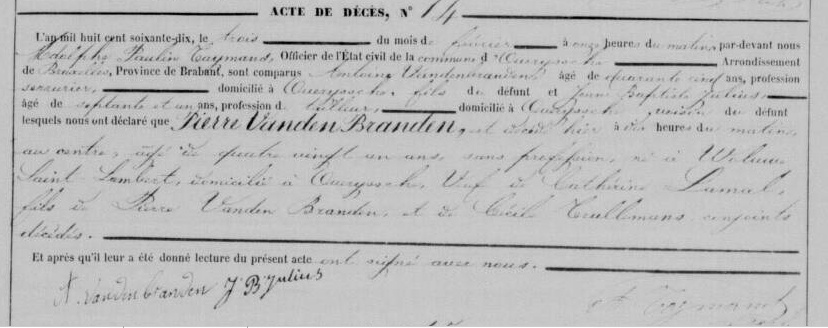 ACTE DE DÉCÈS, N° 14
L'an mil huit cent soixante-dix, le trois du mois de février à onze heures du matin, par-devant nous
Adolphe Paulin Taymans, Officier de l'État civil de la commune d'Overyssche Arrondissement
de Bruxelles, Province de Brabant, sont comparus Antoine Vandenbranden, âgé de quarante cinq ans, profession
serrurier, domicilié à Overyssche, fils du défunt et Jean Baptiste Julius
âgé de septante et un ans, profession de tailleur, domicilié à Overyssche du défunt
lesquels nous ont déclaré que Pierre Vanden Branden, est décédé hier à dix heures du matin,
au centre, âgé de quatre vingt un ans, sans profession, né à Woluwe
Saint Lambert, domicilié à Overyssche, Veuf de Catherine Lamal,
fils de Pierre Vanden Branden, et de Cécile conjoints
décédés.
Et après qu'il leur a été donné lecture du présent acte ont signé avec nous.
A. Vandenbranden J B Julius